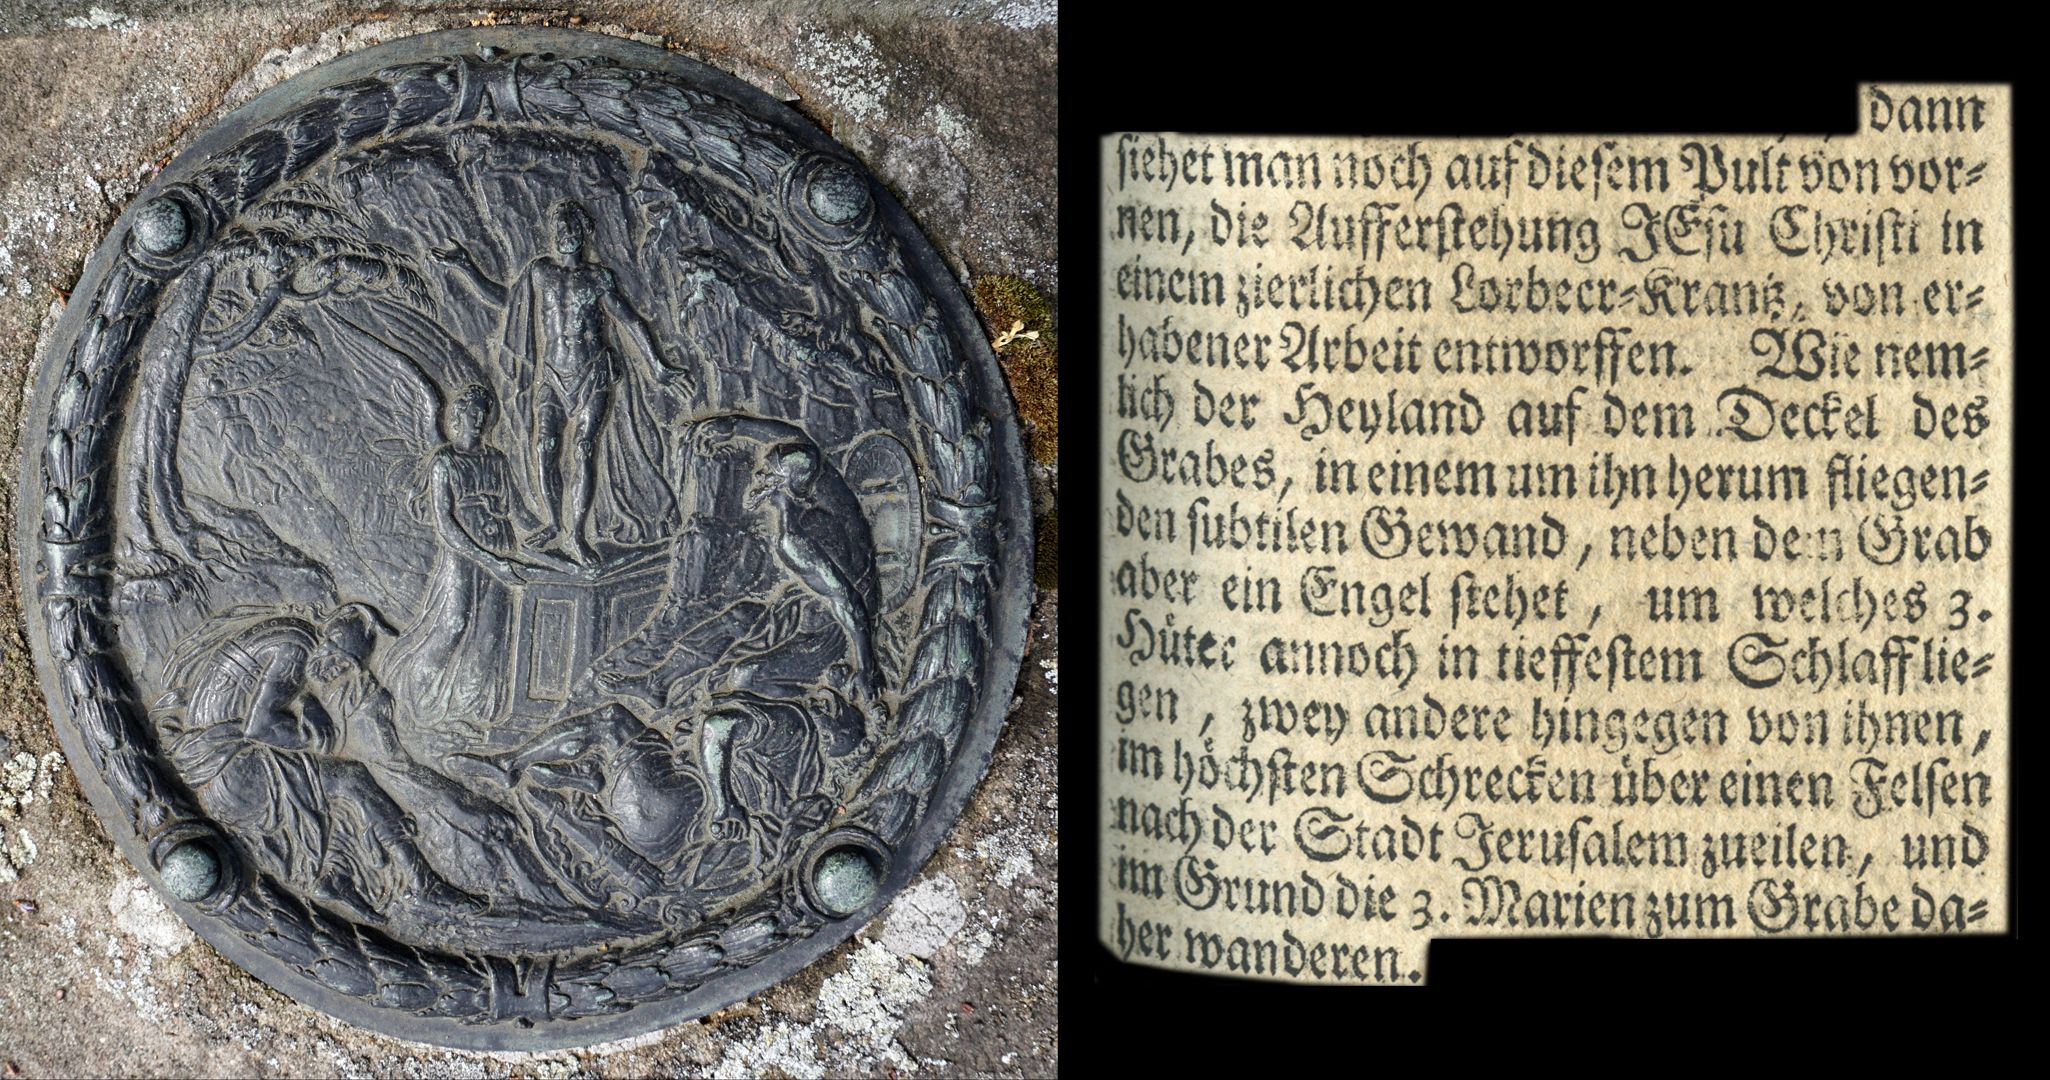 dann
siehet man noch auf diesem Pult von vor-
nen, die Aufferstehung JEsu Christi in
einem zierlichen Lorbeer-Krantz, von er-
habener Arbeit entworffen. Wie nem-
lich der Heyland auf dem Deckel des
Grabes, in einem um ihn herum fliegen-
den subtilen Gewand, neben dem Grab
aber ein Engel stehet, um welches 3.
Hüter annoch in tieffestem Schlaff lie-
gen, zwey andere hingegen von ihnen,
im höchsten Schrecken über einen Felsen
nach der Stadt Jerusalem zueilen, und
im Grund die 3. Marien zum Grabe da-
her wanderen.